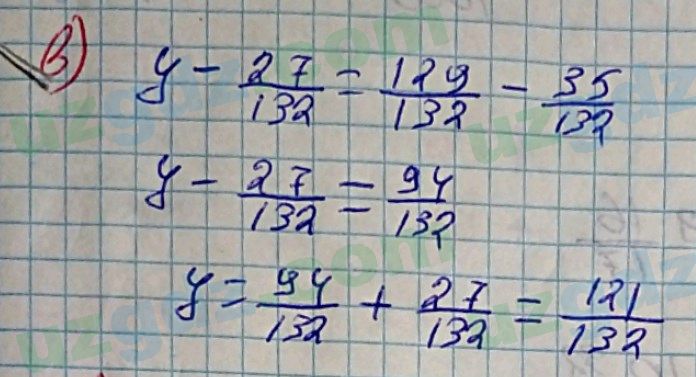 в) y - 27/132 = 129/132 - 35/132
y - 27/132 = 94/132
y = 94/132 + 27/132 = 121/132